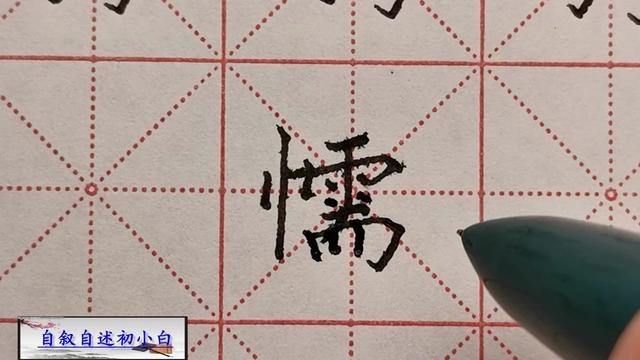 懦
自叙自述初小白